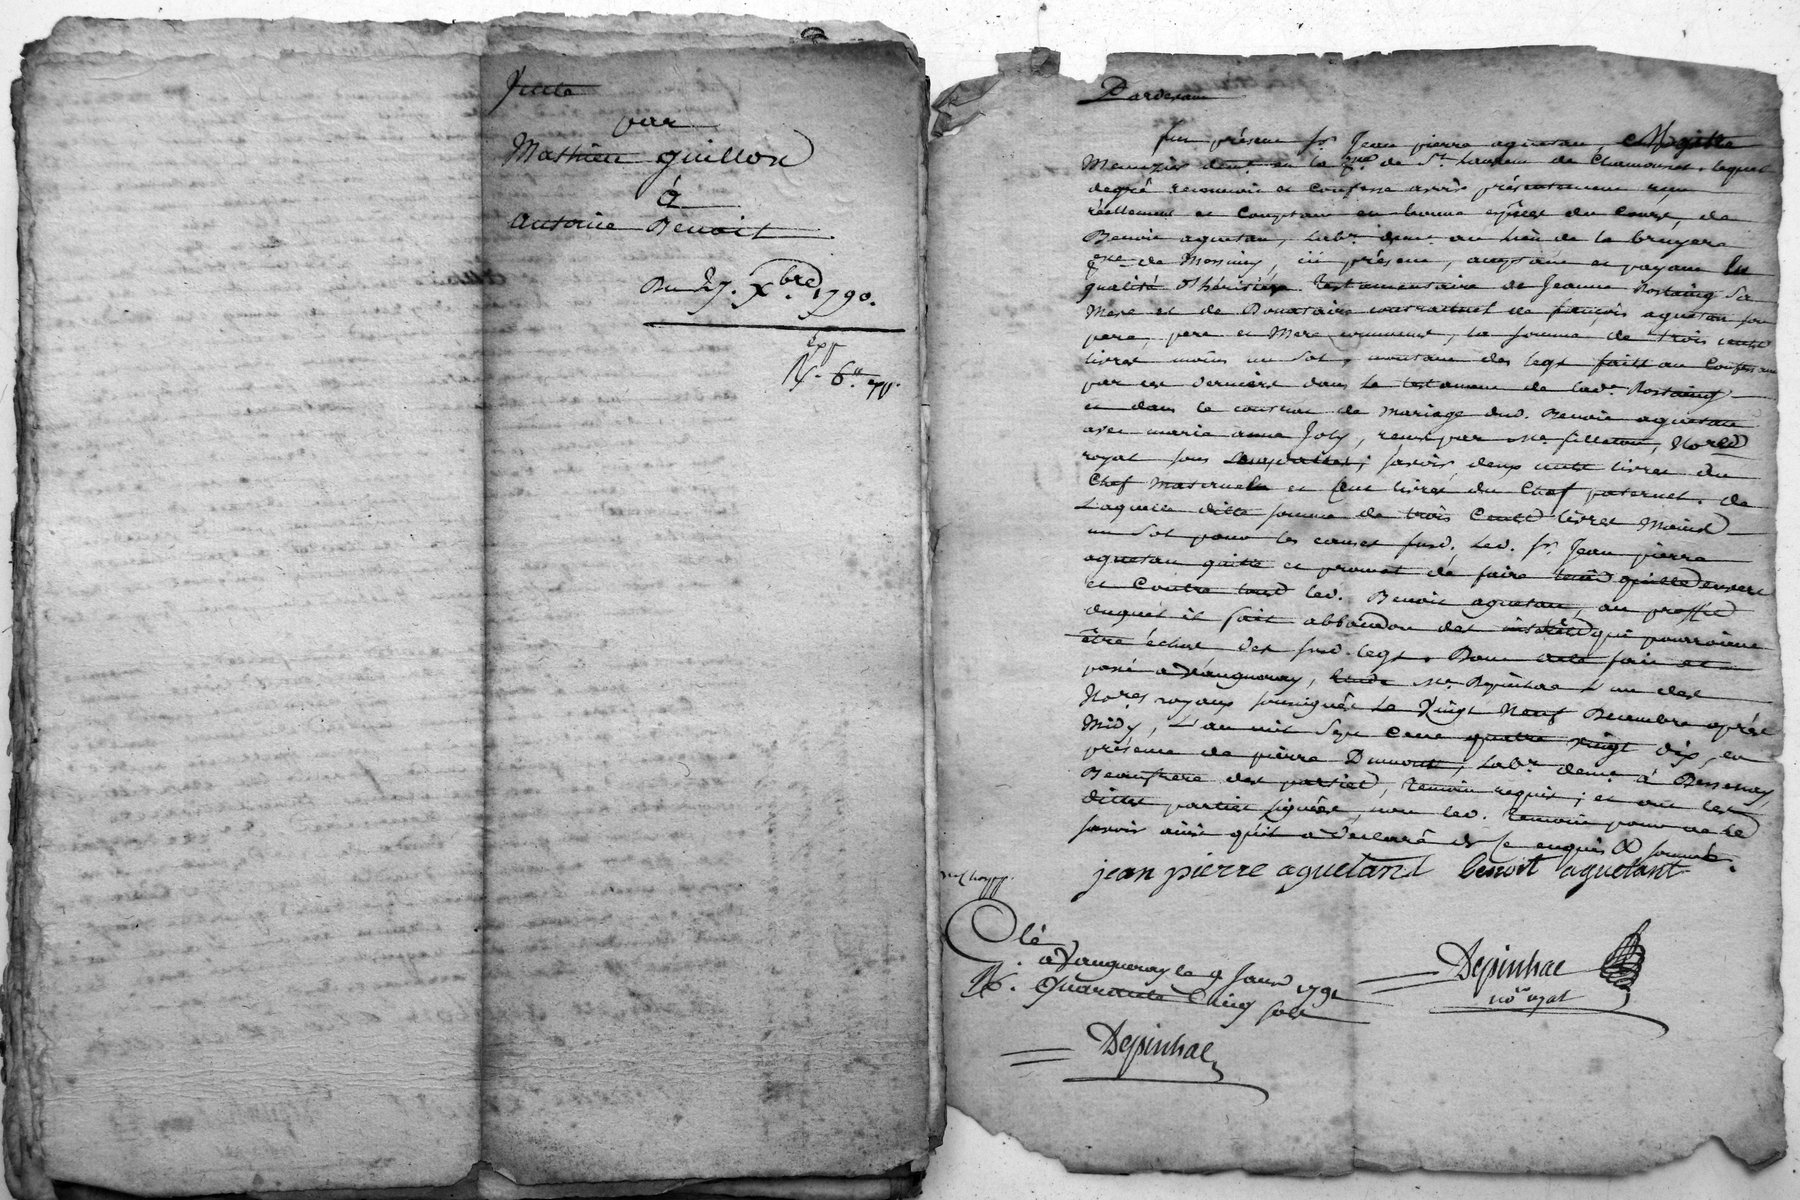 par
Mathieu guillon
à
antoine Benoit
Du 27. Xbre. 1790.
exp
Pardevant
fut présent sr. Jean pierre aguetan
Menuizier demt. en la psse. de St. Laurent de Chamousset, lequel
degré reconnoit et Confesse avoir présentement reçu
réellement et Comptant en bonne espèces du Cours, de
Benoit aguetan, labr. demt. au lieu de la bruyere
psse. de Messimy, ici présent, acceptant et payant En
qualité d'héritier Testamentaire de Jeanne Rostaing Sa
Mere et de Donataire contractuel de françois aguetan son
pere, pere et Mere communs, la somme de trois cents
livres moins un Sol, montant des legs faits au Confessant
par ces derniers dans le testament de lade. Rostaing
et dans le contrat de mariage dud. Benoit aguetan
avec marie anne Joly, reçus par Me. filleton, Notre
royal sous ; savoir deux cents livres du
Chef maternel et Cent livres du Chef paternel. de
Laquelle ditte somme de trois Cents livres Moins
un Sol pour les causes susd., led. sr. Jean pierre
aguetan quitte et promet de faire tenir quitte envers
et Contre tous led. Benoit aguetan, au proffit
duquel il fait abbandon des intérêts qui pourroient
être échus des susd. legs. Dont acte fait et
passé a Vaugneray, Etude Me. Depinhac L'un des
No.res royaux soussignés Le Vingt Neuf Decembre après
Midy, L'an mil Sept Cent quatre vingt dix, en
présence de pierre Dumont, labr. demt. à Bessenay,
Beaufrere des parties, temoin requis; et ont les
dittes parties signées, non led. temoin pour ne le
savoir ainsi qu'il a declaré de ce enquis & sommé.
jean pierre aguetant benoit aguetant
Clé
a Vaugneray le 9 Janv 1791
R. Quarante Cinq sols
Depinhac
nore. royal
Depinhac